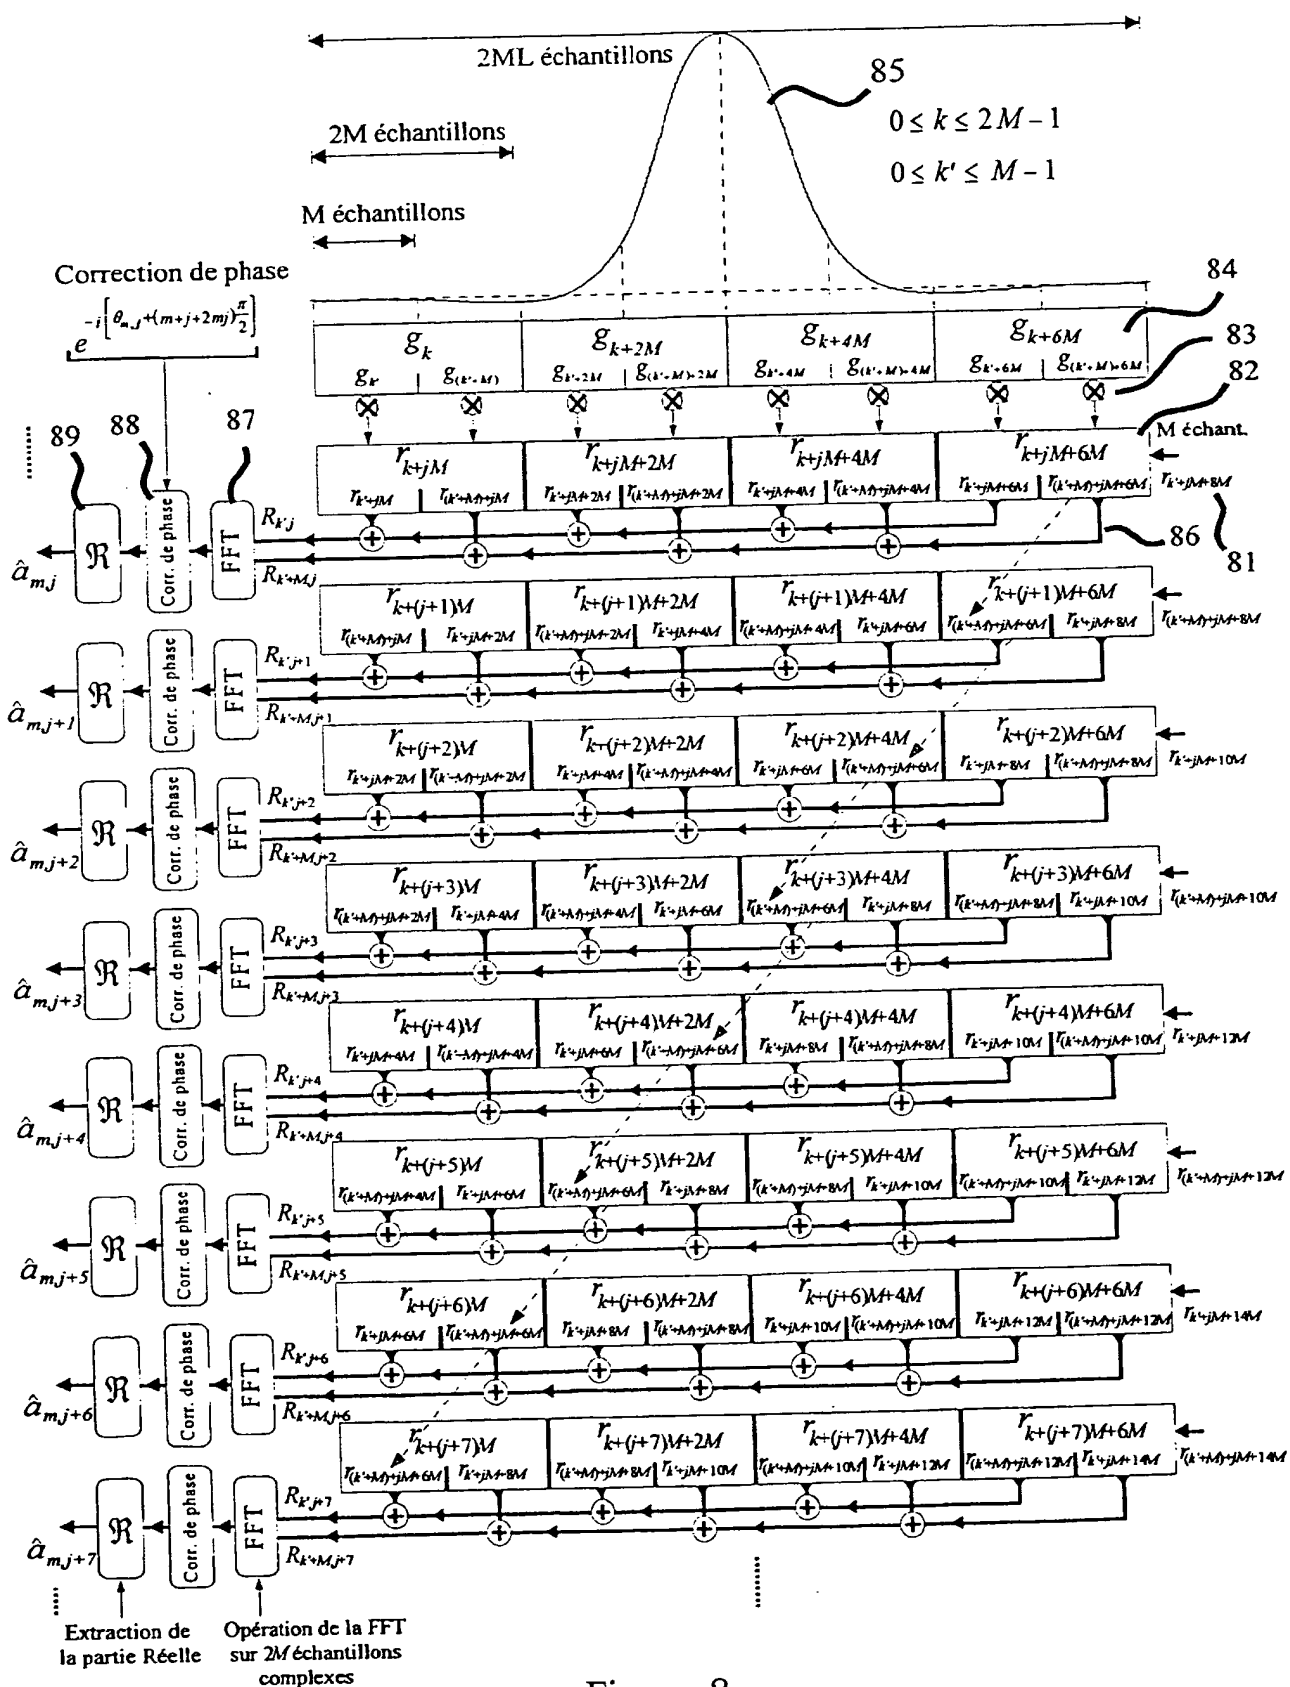 2ML échantillons
85
0 ≤ k ≤ 2M − 1
2M échantillons
0 ≤ k' ≤ M − 1
M échantillons
Correction de phase
e^{-i[θ_{m,j}+(m+j+2mj)π/2]}
84
g_k g_{k+2M} g_{k+4M} g_{k+6M}
g_{k'} g_{(k'+M)} g_{k'+2M} g_{(k'+M)+2M} g_{k'+4M} g_{(k'+M)+4M} g_{k'+6M} g_{(k'+M)+6M}
83
82
89 88 87
M échant.
r_{k+jM} r_{k+jM+2M} r_{k+jM+4M} r_{k+jM+6M}
r_{k'+jM} r_{(k'+M)+jM} r_{k'+jM+2M} r_{(k'+M)+jM+2M} r_{k'+jM+4M} r_{(k'+M)+jM+4M} r_{k'+jM+6M} r_{(k'+M)+jM+6M} r_{k'+jM+8M}
86 81
â_{m,j} ℜ Corr. de phase FFT R_{k',j} R_{k'+M,j}
r_{k+(j+1)M} r_{k+(j+1)M+2M} r_{k+(j+1)M+4M} r_{k+(j+1)M+6M}
r_{(k'+M)+jM} r_{k'+jM+2M} r_{(k'+M)+jM+2M} r_{k'+jM+4M} r_{(k'+M)+jM+4M} r_{k'+jM+6M} r_{(k'+M)+jM+6M} r_{k'+jM+8M} r_{(k'+M)+jM+8M}
â_{m,j+1} ℜ Corr. de phase FFT R_{k',j+1} R_{k'+M,j+1}
r_{k+(j+2)M} r_{k+(j+2)M+2M} r_{k+(j+2)M+4M} r_{k+(j+2)M+6M}
r_{k'+jM+2M} r_{(k'+M)+jM+2M} r_{k'+jM+4M} r_{(k'+M)+jM+4M} r_{k'+jM+6M} r_{(k'+M)+jM+6M} r_{k'+jM+8M} r_{(k'+M)+jM+8M} r_{k'+jM+10M}
â_{m,j+2} ℜ Corr. de phase FFT R_{k',j+2} R_{k'+M,j+2}
r_{k+(j+3)M} r_{k+(j+3)M+2M} r_{k+(j+3)M+4M} r_{k+(j+3)M+6M}
r_{(k'+M)+jM+2M} r_{k'+jM+4M} r_{(k'+M)+jM+4M} r_{k'+jM+6M} r_{(k'+M)+jM+6M} r_{k'+jM+8M} r_{(k'+M)+jM+8M} r_{k'+jM+10M} r_{(k'+M)+jM+10M}
â_{m,j+3} ℜ Corr. de phase FFT R_{k',j+3} R_{k'+M,j+3}
r_{k+(j+4)M} r_{k+(j+4)M+2M} r_{k+(j+4)M+4M} r_{k+(j+4)M+6M}
r_{k'+jM+4M} r_{(k'+M)+jM+4M} r_{k'+jM+6M} r_{(k'+M)+jM+6M} r_{k'+jM+8M} r_{(k'+M)+jM+8M} r_{k'+jM+10M} r_{(k'+M)+jM+10M} r_{k'+jM+12M}
â_{m,j+4} ℜ Corr. de phase FFT R_{k',j+4} R_{k'+M,j+4}
r_{k+(j+5)M} r_{k+(j+5)M+2M} r_{k+(j+5)M+4M} r_{k+(j+5)M+6M}
r_{(k'+M)+jM+4M} r_{k'+jM+6M} r_{(k'+M)+jM+6M} r_{k'+jM+8M} r_{(k'+M)+jM+8M} r_{k'+jM+10M} r_{(k'+M)+jM+10M} r_{k'+jM+12M} r_{(k'+M)+jM+12M}
â_{m,j+5} ℜ Corr. de phase FFT R_{k',j+5} R_{k'+M,j+5}
r_{k+(j+6)M} r_{k+(j+6)M+2M} r_{k+(j+6)M+4M} r_{k+(j+6)M+6M}
r_{k'+jM+6M} r_{(k'+M)+jM+6M} r_{k'+jM+8M} r_{(k'+M)+jM+8M} r_{k'+jM+10M} r_{(k'+M)+jM+10M} r_{k'+jM+12M} r_{(k'+M)+jM+12M} r_{k'+jM+14M}
â_{m,j+6} ℜ Corr. de phase FFT R_{k',j+6} R_{k'+M,j+6}
r_{k+(j+7)M} r_{k+(j+7)M+2M} r_{k+(j+7)M+4M} r_{k+(j+7)M+6M}
r_{(k'+M)+jM+6M} r_{k'+jM+8M} r_{(k'+M)+jM+8M} r_{k'+jM+10M} r_{(k'+M)+jM+10M} r_{k'+jM+12M} r_{(k'+M)+jM+12M} r_{k'+jM+14M} r_{(k'+M)+jM+14M}
â_{m,j+7} ℜ Corr. de phase FFT R_{k',j+7} R_{k'+M,j+7}
Extraction de
la partie Réelle
Opération de la FFT
sur 2M échantillons
complexes